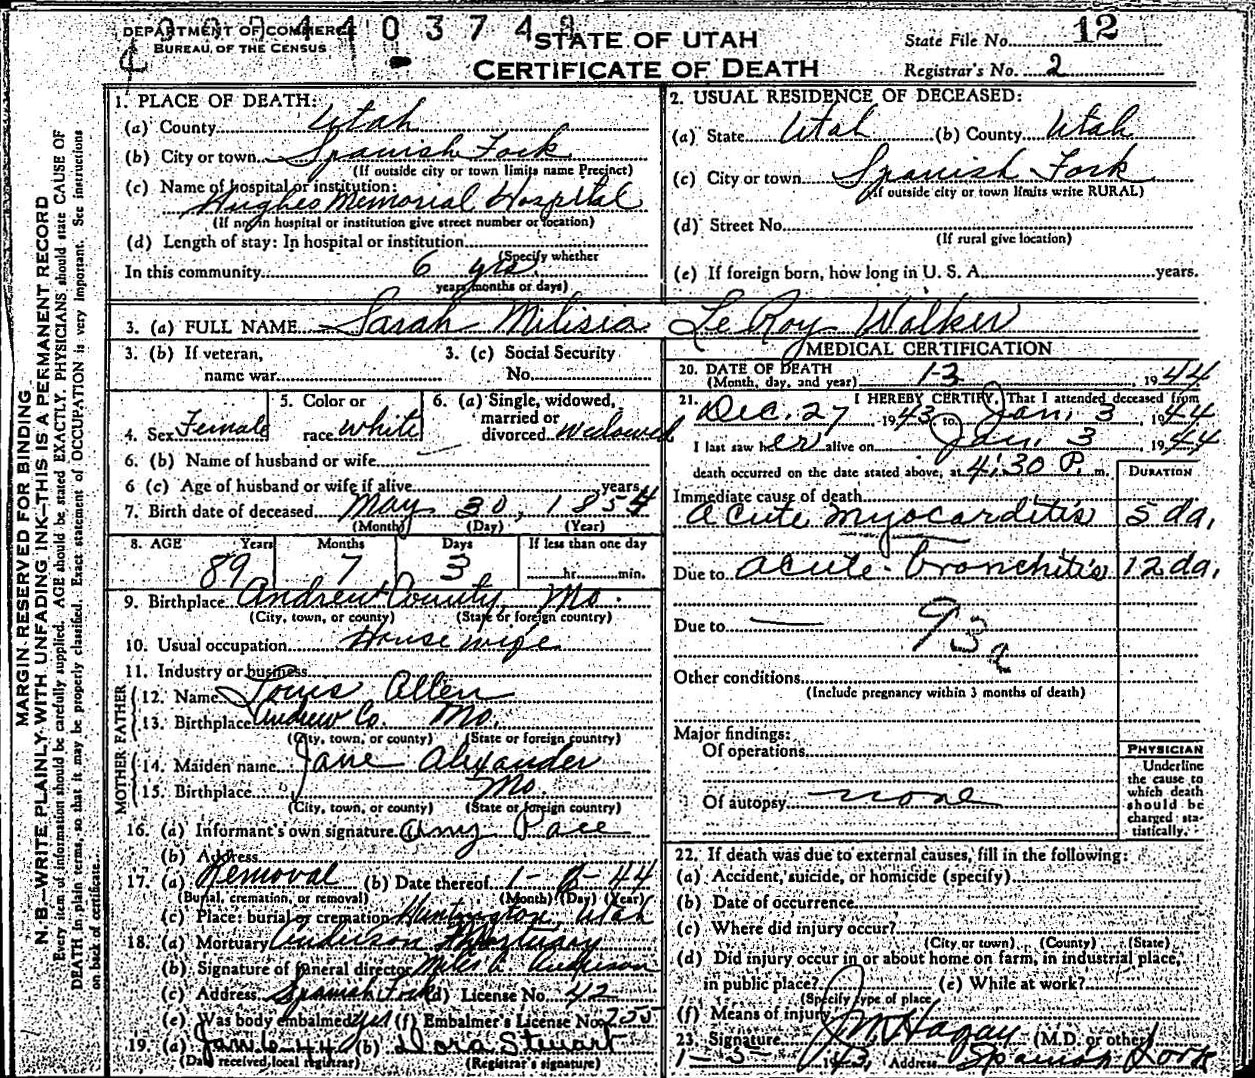 DEPARTMENT OF COMMERCE
BUREAU OF THE CENSUS
STATE OF UTAH
CERTIFICATE OF DEATH
State File No. 12
Registrar's No. 2
MARGIN RESERVED FOR BINDING
N. B.—WRITE PLAINLY WITH UNFADING INK—THIS IS A PERMANENT RECORD
Every item of information should be carefully supplied. AGE should be stated EXACTLY. PHYSICIANS should state CAUSE OF
DEATH in plain terms, so that it may be properly classified. Exact statement of OCCUPATION is very important. See instructions
on back of certificate.
1. PLACE OF DEATH:
(a) County Utah
(b) City or town Spanish Fork
(If outside city or town limits name Precinct)
(c) Name of hospital or institution:
Hughes Memorial Hospital
(If not in hospital or institution give street number or location)
(d) Length of stay: In hospital or institution
(Specify whether
In this community 6 yrs.
years, months or days)
2. USUAL RESIDENCE OF DECEASED:
(a) State Utah (b) County Utah
(c) City or town Spanish Fork
(If outside city or town limits write RURAL)
(d) Street No.
(If rural give location)
(e) If foreign born, how long in U. S. A. years.
3. (a) FULL NAME Sarah Milisia Le Roy Walker
3. (b) If veteran,
name war
3. (c) Social Security
No.
4. Sex Female
5. Color or
race white
6. (a) Single, widowed,
married or
divorced widowed
6. (b) Name of husband or wife
6 (c) Age of husband or wife if alive years
7. Birth date of deceased May 30, 1854
(Month) (Day) (Year)
8. AGE Years Months Days If less than one day
89 7 3 hr. min.
9. Birthplace Andrew County, Mo.
(City, town, or county) (State or foreign country)
10. Usual occupation House wife
11. Industry or business
FATHER
12. Name Louis Allen
13. Birthplace Andrew Co. Mo.
(City, town, or county) (State or foreign country)
MOTHER
14. Maiden name Jane Alexander
15. Birthplace Mo.
(City, town, or county) (State or foreign country)
16. (a) Informant's own signature Amy Pace
(b) Address
17. (a) Removal (b) Date thereof 1- -44
(Burial, cremation, or removal) (Month) (Day) (Year)
(c) Place: burial or cremation Huntington, Utah
18. (a) Mortuary Anderson Mortuary
(b) Signature of funeral director Anderson
(c) Address Spanish Fork (d) License No. 42
(e) Was body embalmed yes (f) Embalmer's License No. 255
19. (a) Jan. 6-44 (b) Dora Stewart
(Date received local registrar) (Registrar's signature)
MEDICAL CERTIFICATION
20. DATE OF DEATH
(Month, day, and year) 1-3, 1944
21. I HEREBY CERTIFY, That I attended deceased from
Dec. 27 1943 to Jan. 3 1944
I last saw her alive on Jan. 3 1944
death occurred on the date stated above, at 4:30 P. m.
DURATION
Immediate cause of death
acute myocarditis 5 da.
Due to acute bronchitis 12 da.
Due to — 93a
Other conditions
(Include pregnancy within 3 months of death)
Major findings:
Of operations
Of autopsy none
PHYSICIAN
Underline
the cause to
which death
should be
charged sta-
tistically.
22. If death was due to external causes, fill in the following:
(a) Accident, suicide, or homicide (specify)
(b) Date of occurrence
(c) Where did injury occur?
(City or town) (County) (State)
(d) Did injury occur in or about home on farm, in industrial place,
in public place? (e) While at work?
(Specify type of place
(f) Means of injury
23. Signature J M Hagan (M.D. or other)
1-3- 1943, Address Spanish Fork